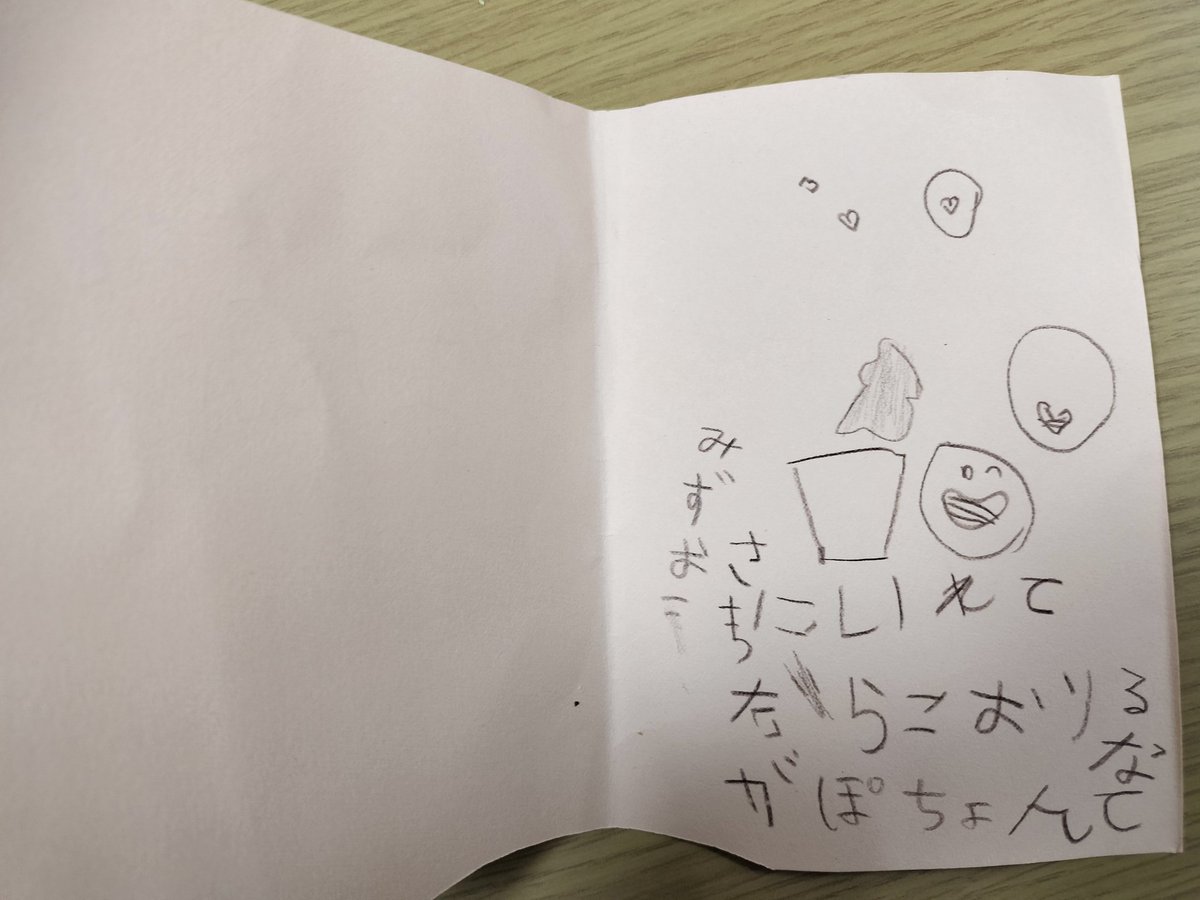 みずお
さちにいれて
たらこおり
がぽちょんて
なる